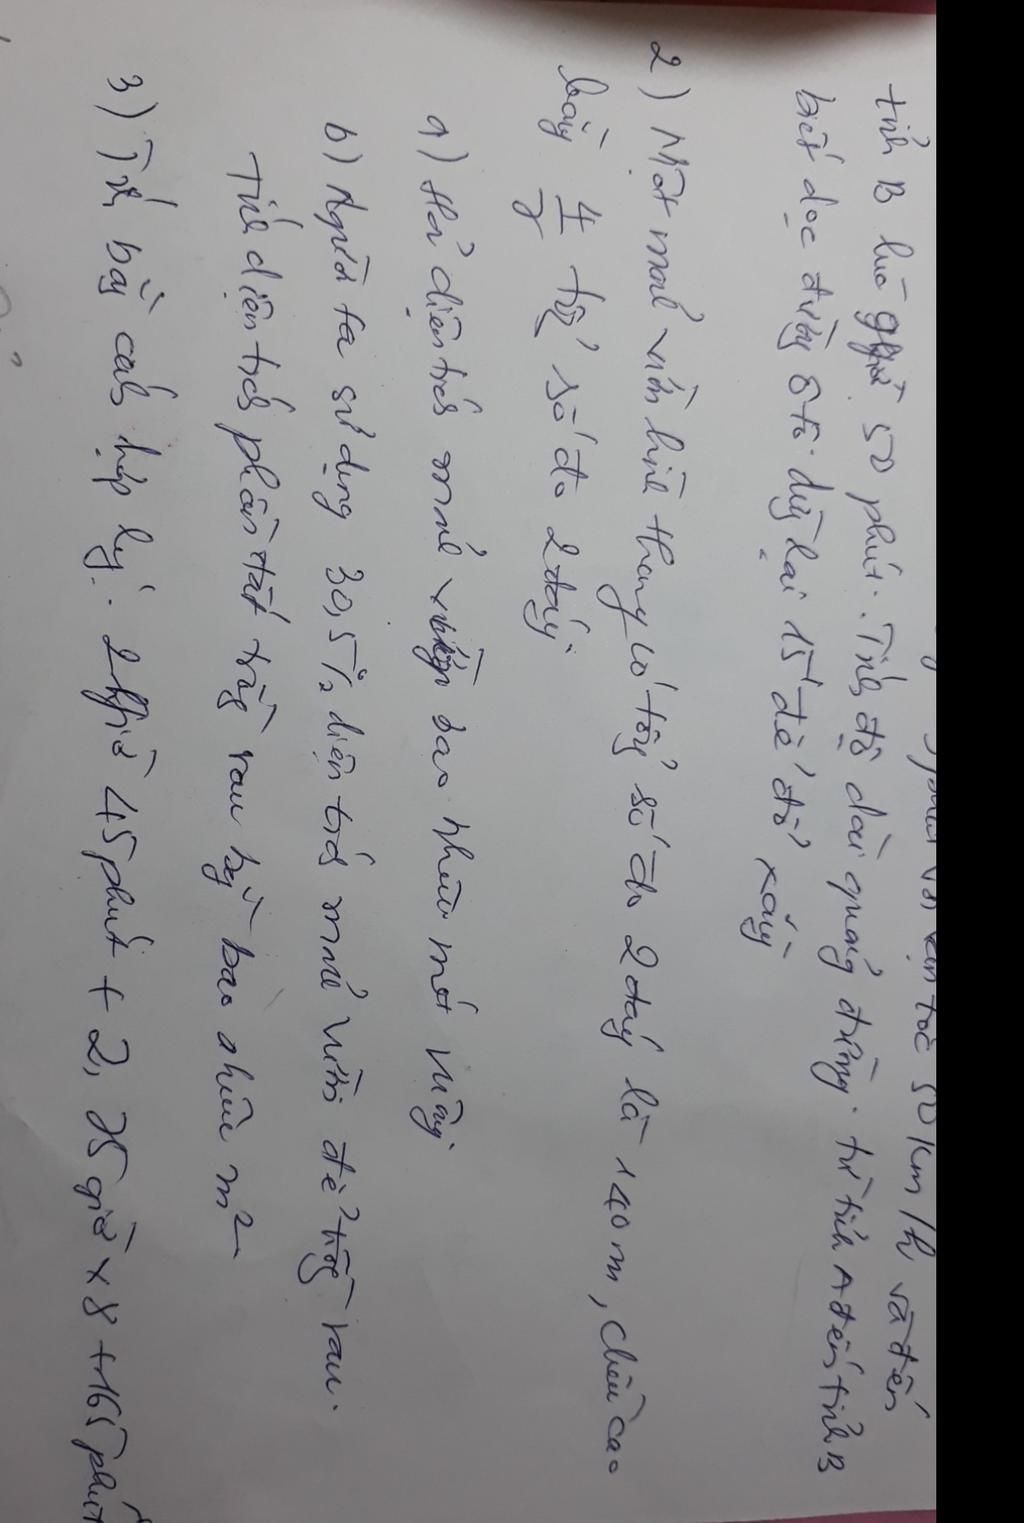 vận tốc 50 km/h và đến
tỉnh B lúc 9 giờ 50 phút. Tính độ dài quãng đường. từ tỉnh A đến tỉnh B
biết dọc đường ô tô. dừng lại 15' để đổ xăng
2) Một mảnh vườn hình thang có tổng số đo 2 đáy là 140 m, chiều cao
bằng 4/7 tổng số đo 2 đáy.
a) Hỏi diện tích mảnh vườn bao nhiêu mét vuông
b) Người ta sử dụng 30,5% diện tích mảnh vườn để trồng rau.
Tính diện tích phần đất trồng rau bằng bao nhiêu m²
3) Tính bằng cách hợp lý. 2 giờ 45 phút + 2,75 giờ x 8 + 165 phút